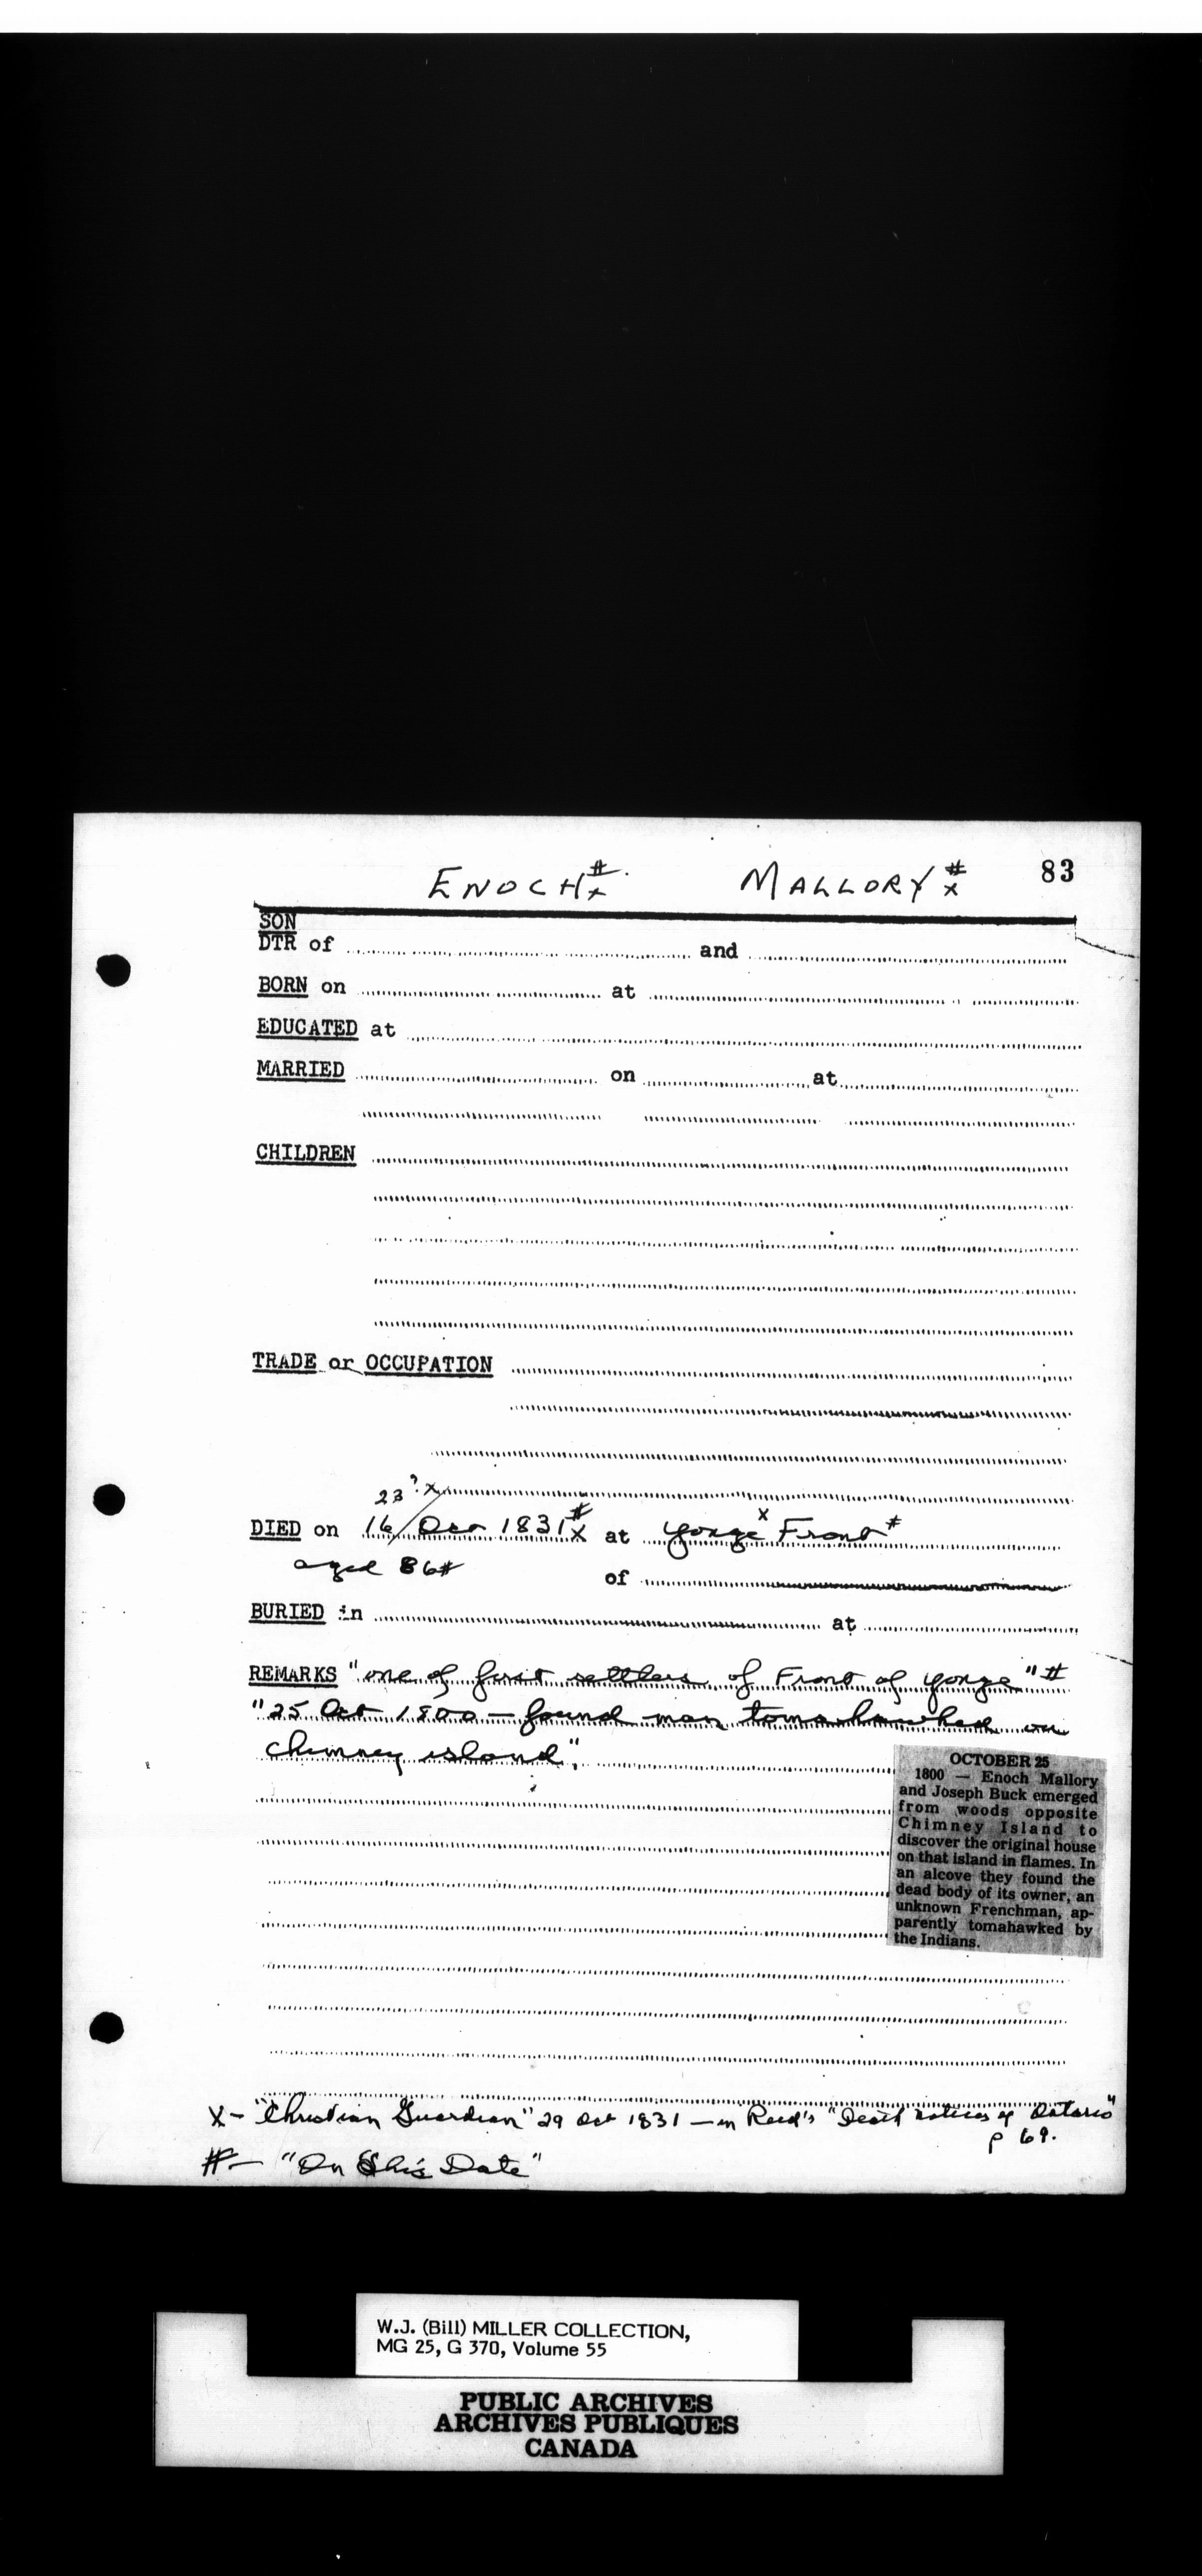 83
ENOCH # x MALLORY # x
SON
DTR of and
BORN on at
EDUCATED at
MARRIED on at
CHILDREN
TRADE or OCCUPATION
23 ? x
DIED on 16/ Oct 1831 # x at Yonge x Front #
aged 86 # of
BURIED in at
REMARKS "one of first settlers of Front of Yonge" #
"25 Oct 1800 – found man tomahawked on
chimney island",
OCTOBER 25
1800 — Enoch Mallory
and Joseph Buck emerged
from woods opposite
Chimney Island to
discover the original house
on that island in flames. In
an alcove they found the
dead body of its owner, an
unknown Frenchman, ap-
parently tomahawked by
the Indians.
X – "Christian Guardian" 29 Oct 1831 – in Reid's "Death notices of Ontario"
p 69.
# – "On This Date"
W.J. (Bill) MILLER COLLECTION,
MG 25, G 370, Volume 55
PUBLIC ARCHIVES
ARCHIVES PUBLIQUES
CANADA